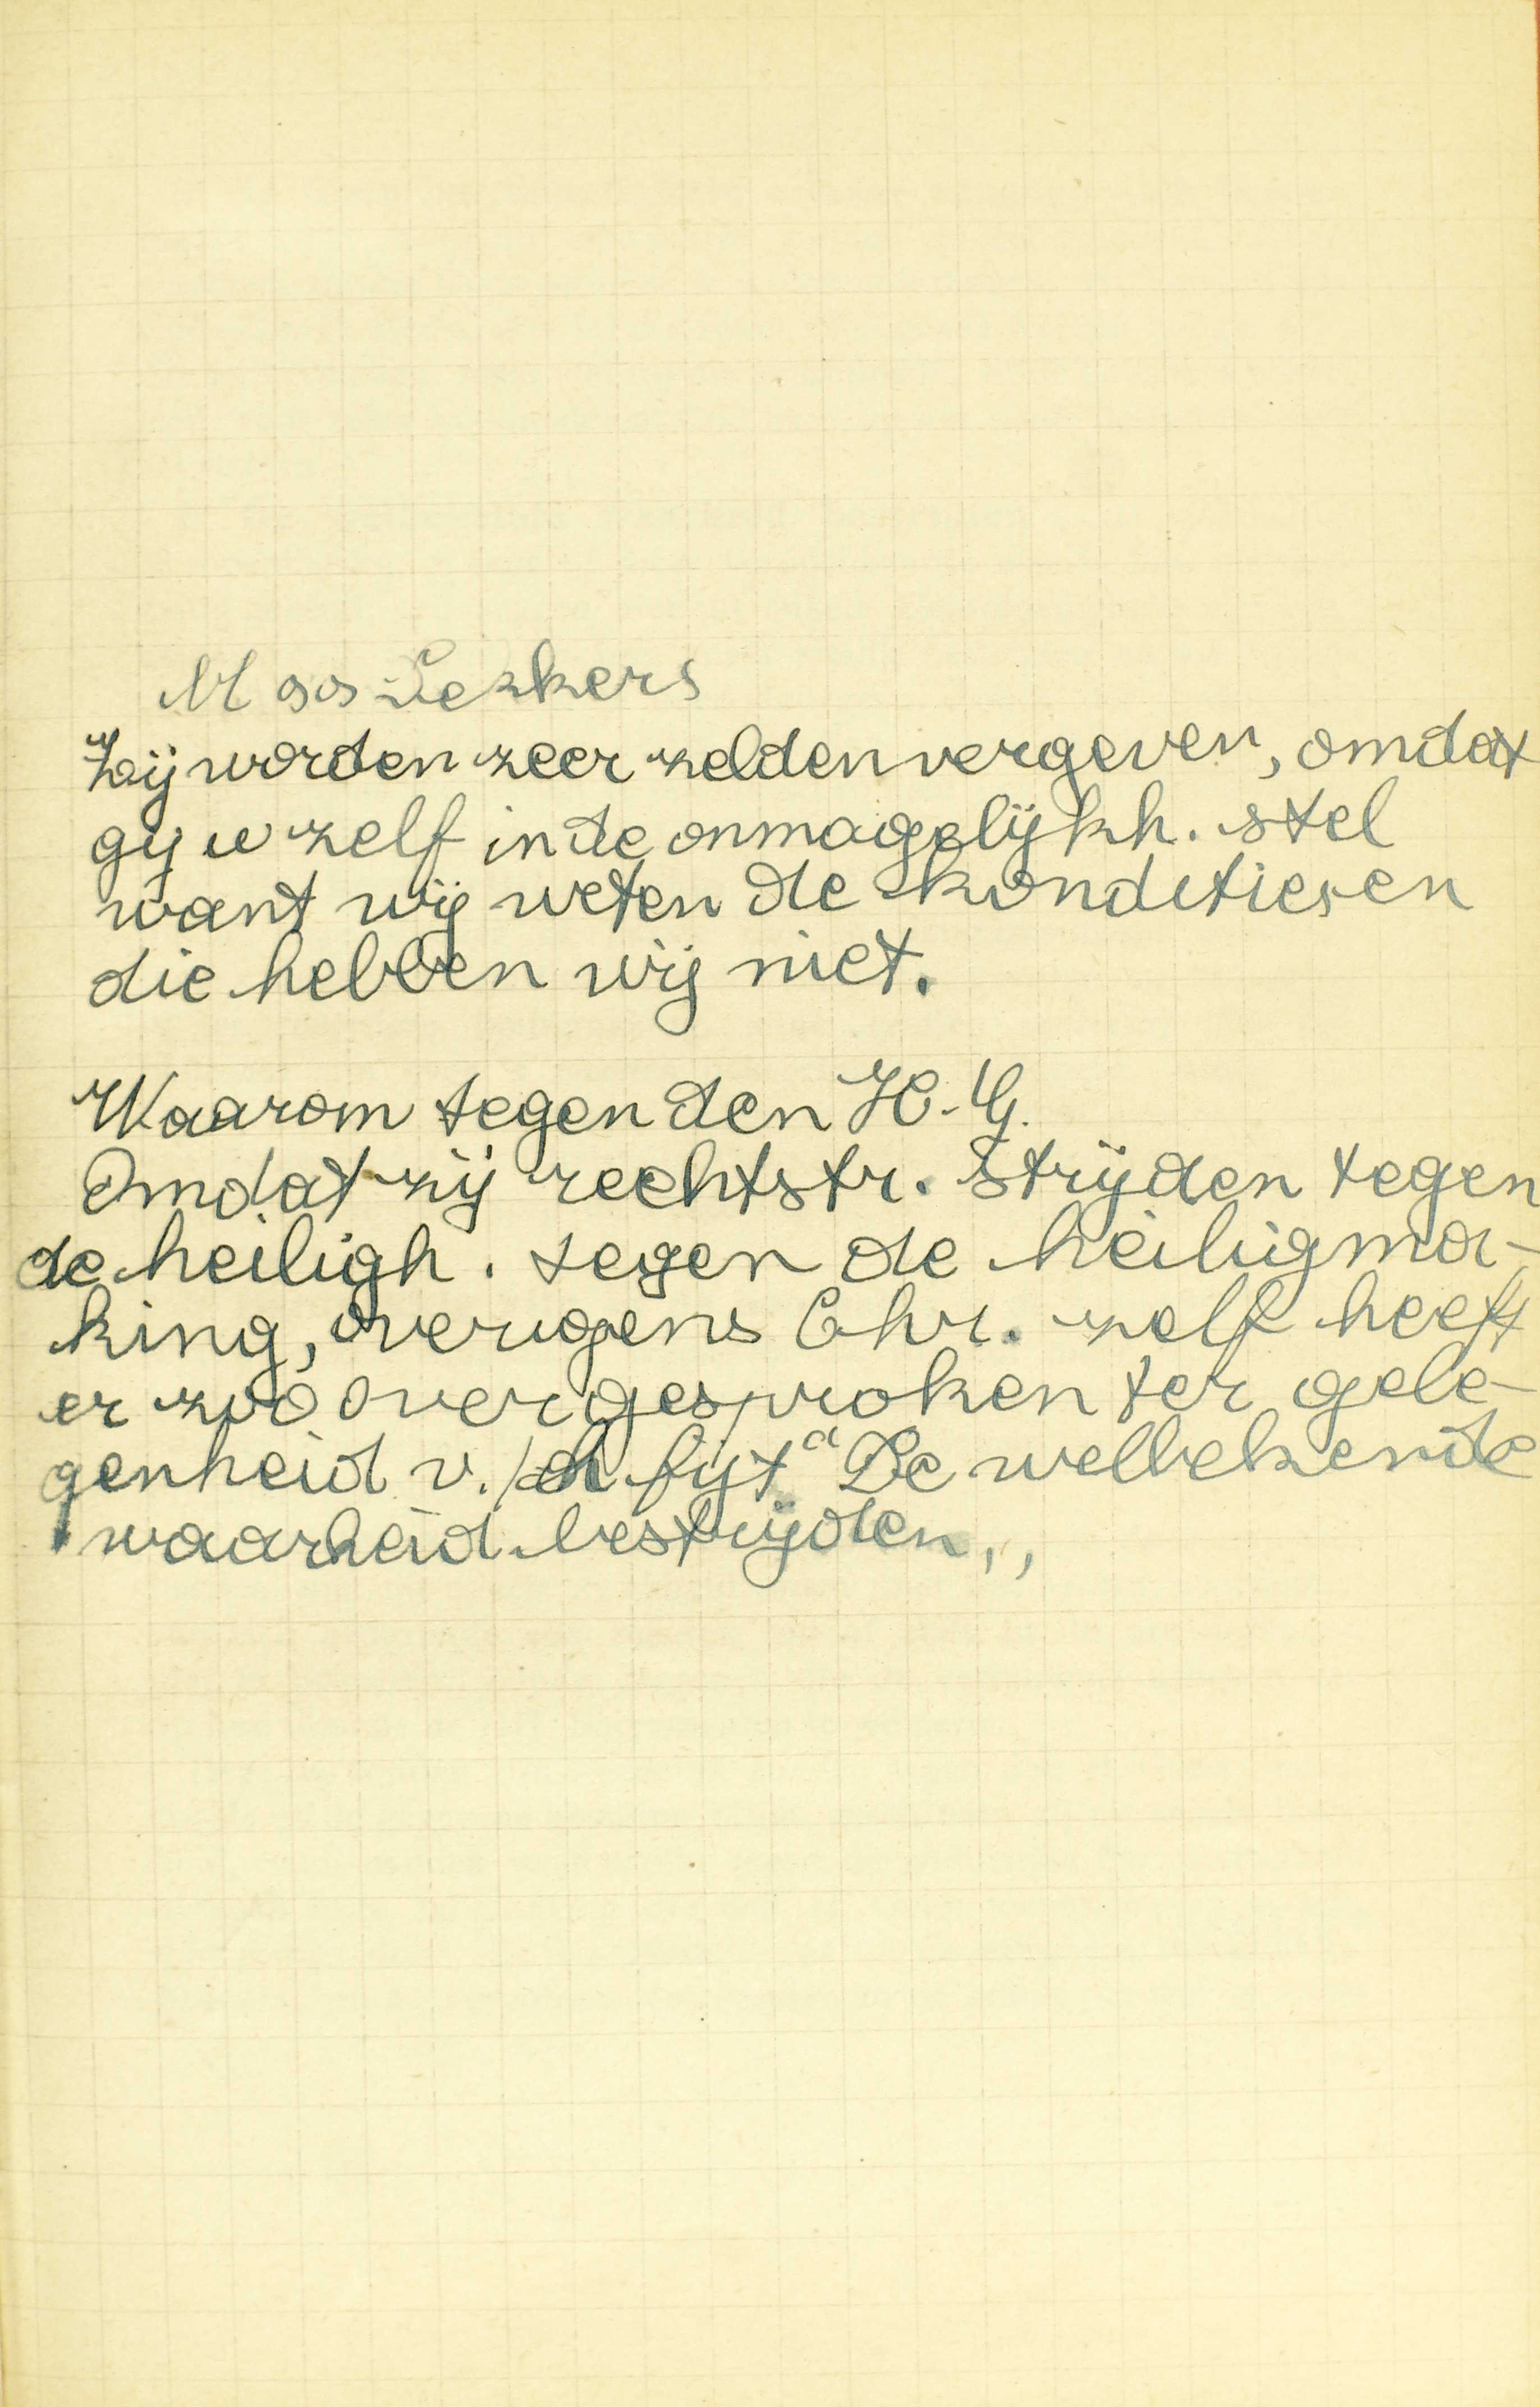 Zij worden zeer zelden vergeven, omdat
gij u zelf in de onmogelijkh. stel
want wij weten de konditiesen
die hebben wij niet.
Waarom tegen den H. G.
Omdat zij rechtstr. strijden tegen
de heiligh. tegen de heiligma-
king, overigens Chr. zelf heeft
er zoo over gesproken ter gele-
genheid v. fijt "De welbekende
waarheid bestrijden,,